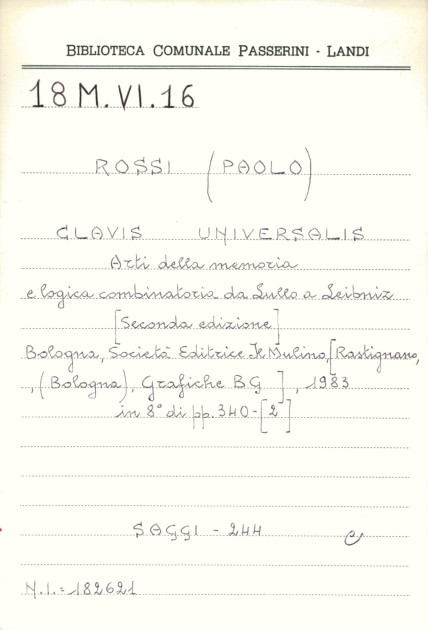 BIBLIOTECA COMUNALE PASSERINI - LANDI
18 M. VI. 16
ROSSI (PAOLO)
CLAVIS UNIVERSALIS
Arti della memoria
e logica combinatoria da Lullo a Leibniz
[Seconda edizione]
Bologna, Società Editrice Il Mulino, [Rastignano,
, (Bologna), Grafiche BG ] , 1983
in 8° di pp. 340-[2]
SAGGI - 244
N.I.= 182621